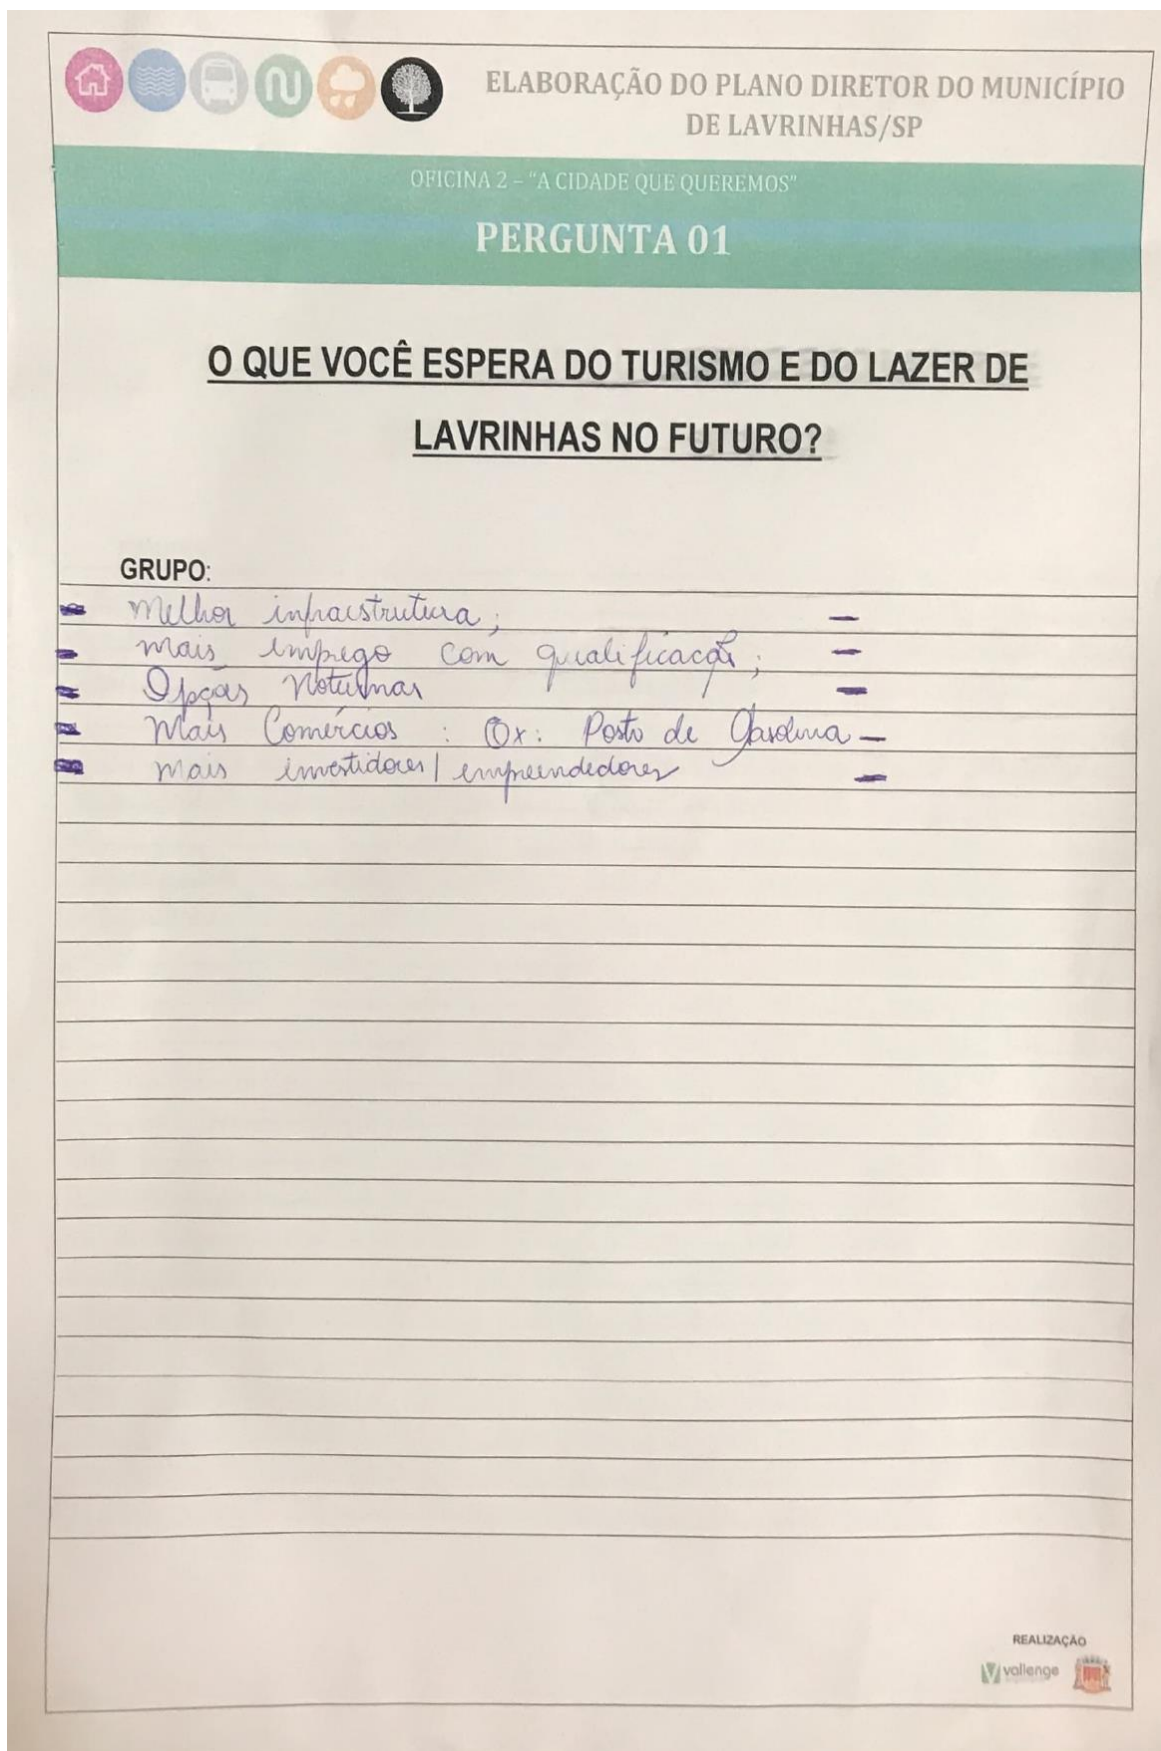 ELABORAÇÃO DO PLANO DIRETOR DO MUNICÍPIO
DE LAVRINHAS/SP
OFICINA 2 – "A CIDADE QUE QUEREMOS"
PERGUNTA 01
O QUE VOCÊ ESPERA DO TURISMO E DO LAZER DE
LAVRINHAS NO FUTURO?
GRUPO:
- Melhor infraestrutura; -
- mais emprego com qualificação; -
- Opções Noturnas -
- Mais Comércios : Ex: Posto de Gasolina -
- mais investidores/ empreendedores -
REALIZAÇÃO
vallenge